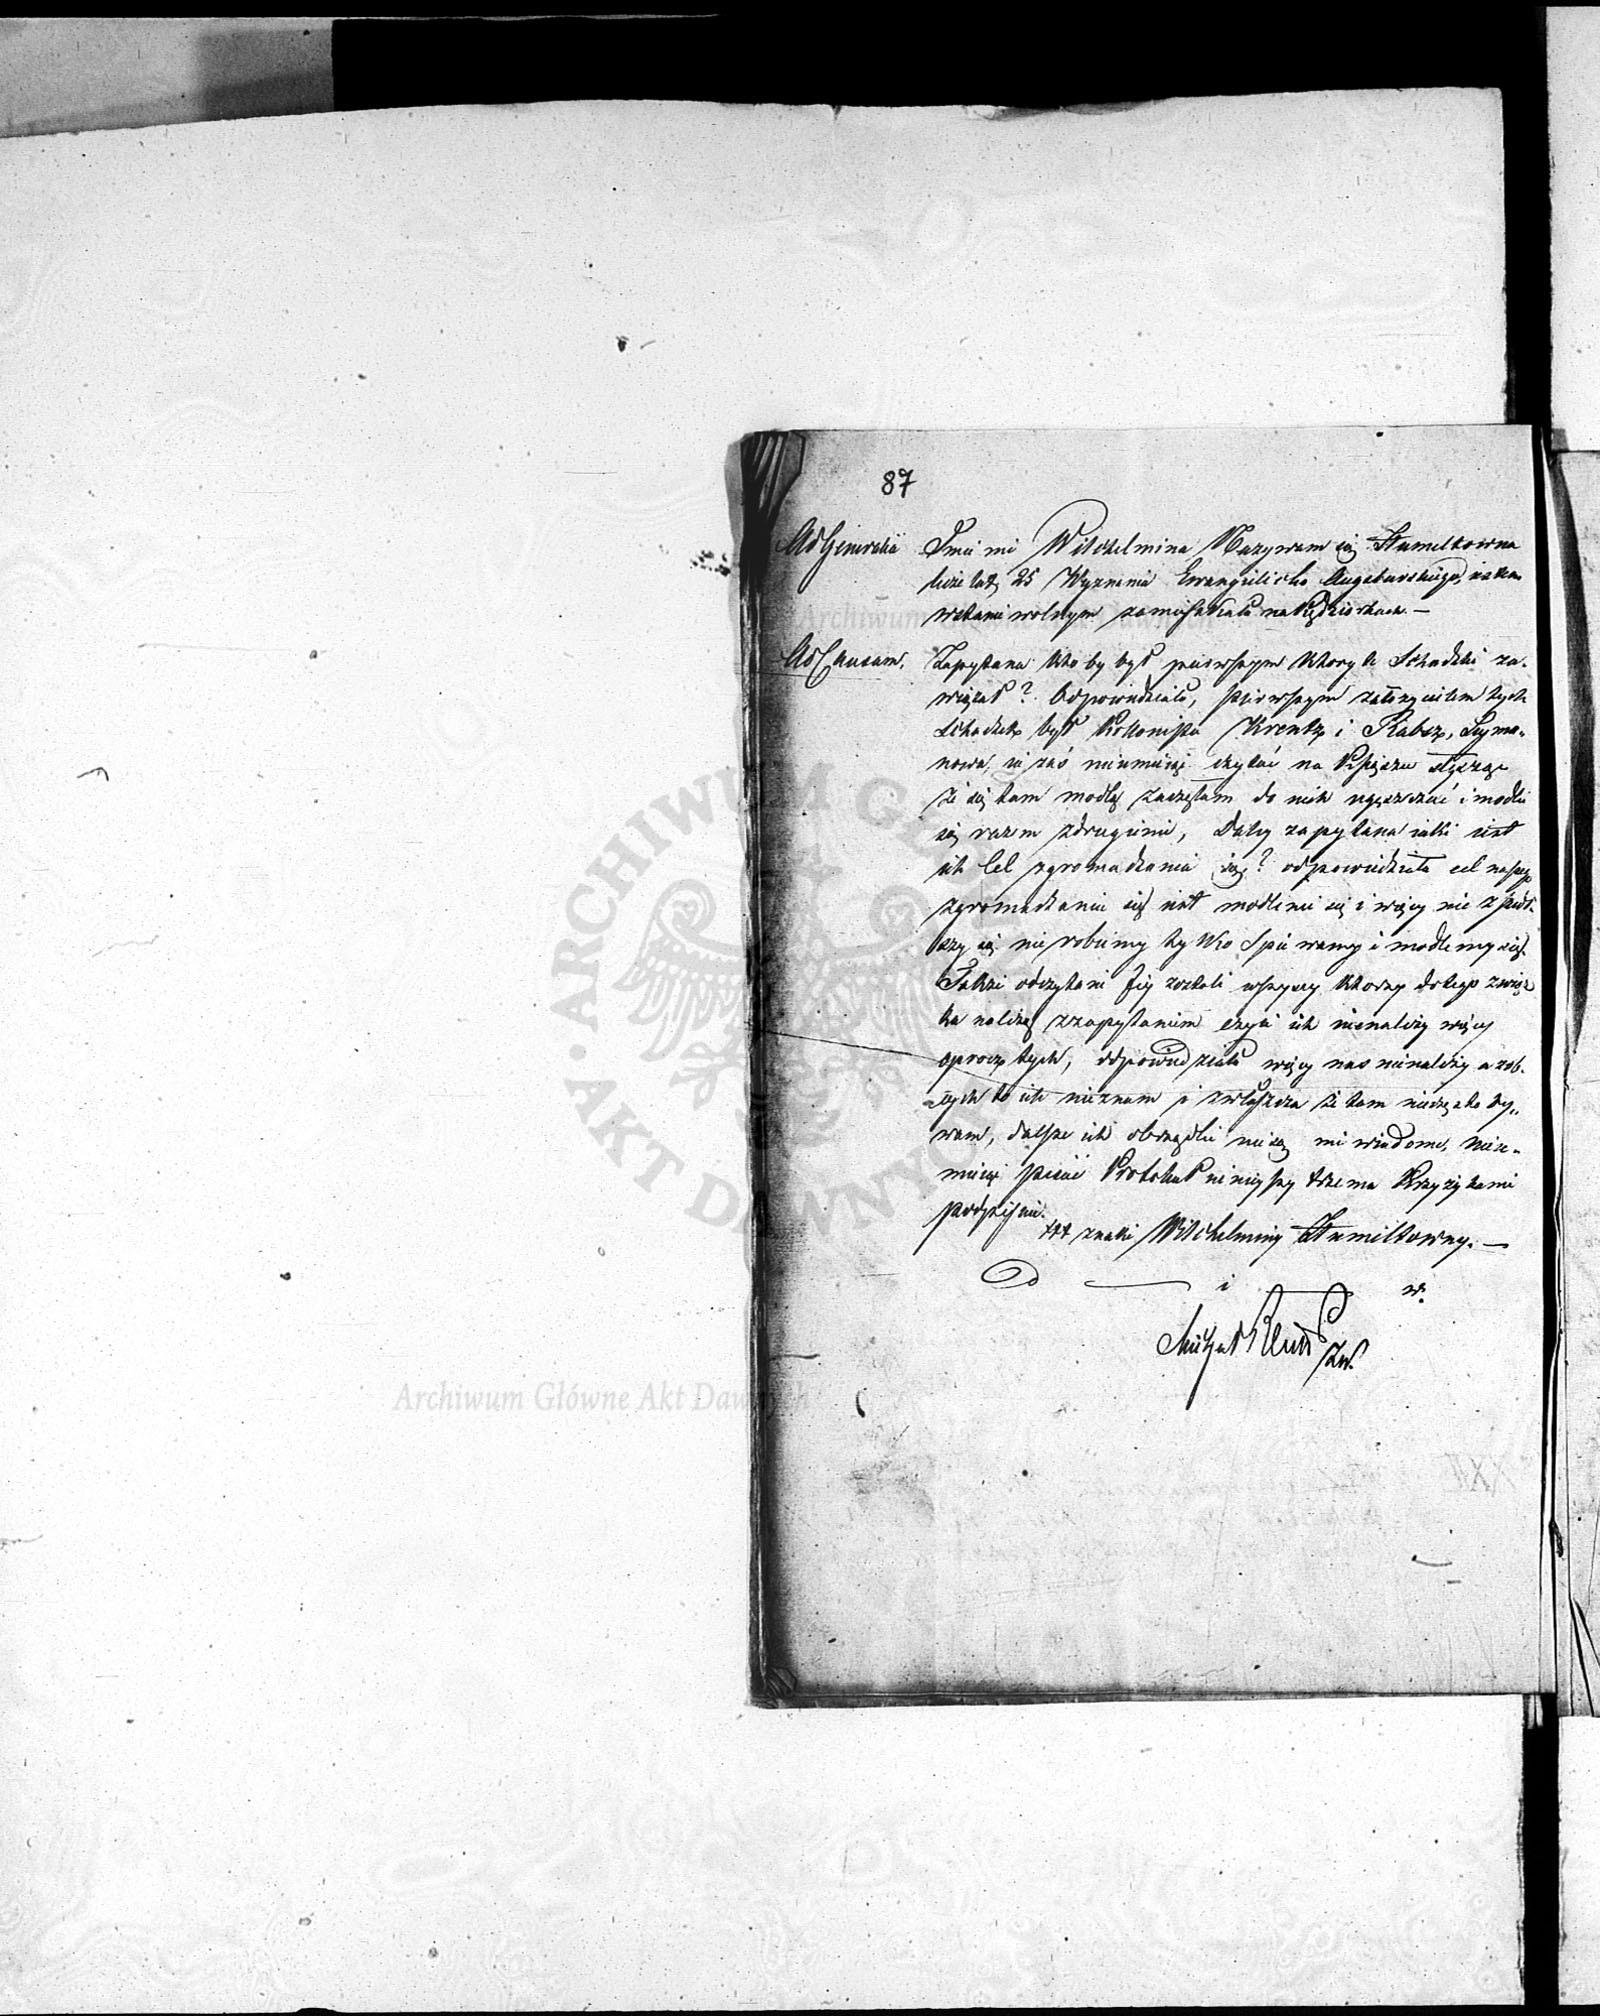 87
Ad Generalia Imie mi Wilchelmina Nazywam się Hamiltowna
licze lat 25 Wyznania Ewangielicko Augsburskiego, iestem
wstanie wolnym zamieszkała na Kędziorkach. —
Ad Causam. Zapytana kto by był pierwszym który te Schadzki za-
wiązał? Odpowiedziała, pierwszym założycielem tych
Schadzek był Kolonista Krentz i Rabsz, Szyma-
nowa, ia zaś nieumieiąc czytać na Książce słysząc
że się tam modlą zaczęłam do nich uczęszczać i modlić
się razem zdrugiemi, Daley zapytana iaki iest
ich Cel zgromadzania się? odpowiedziała cel naszego
zgromadzania się iest modlenie się i więcy nic
nie robiemy tylko Spiewamy i modlemy się.
Także odczytani Jey zostali wszyscy którzy dotego związ
ku należą zzapytaniem czyli ich nienależy więcy
oprócz tych, odpowiedziała więcy nas nienależy a z ob-
cych to ich nieznam i zwłaszcza że tam nieczęsto by-
wam, dalsze ich obrządki nie są mi wiadome, nieu-
mieiąc pisać Protokuł ninieyszy trzema Krzyżykami
podpisuie.
+++ znaki Wilchelminy Hamiltowny. —
i w.
Michał Zw.
ARCHIWUM GŁÓWNE AKT DAWNYCH
Archiwum Główne Akt Dawnych